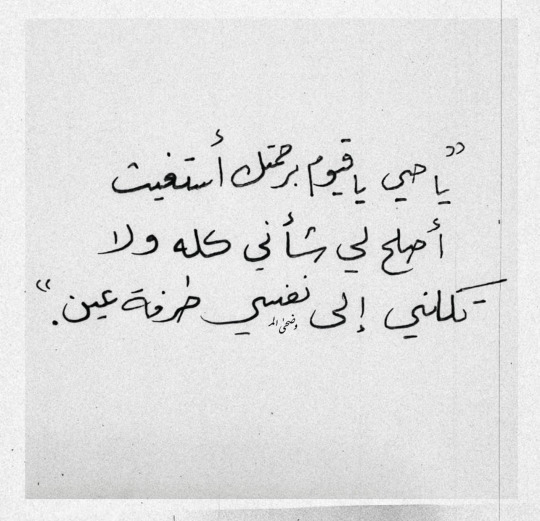 "يا حي يا قيوم برحمتك أستغيث
أصلح لي شأني كله ولا
تكلني إلى نفسي طرفة عين."